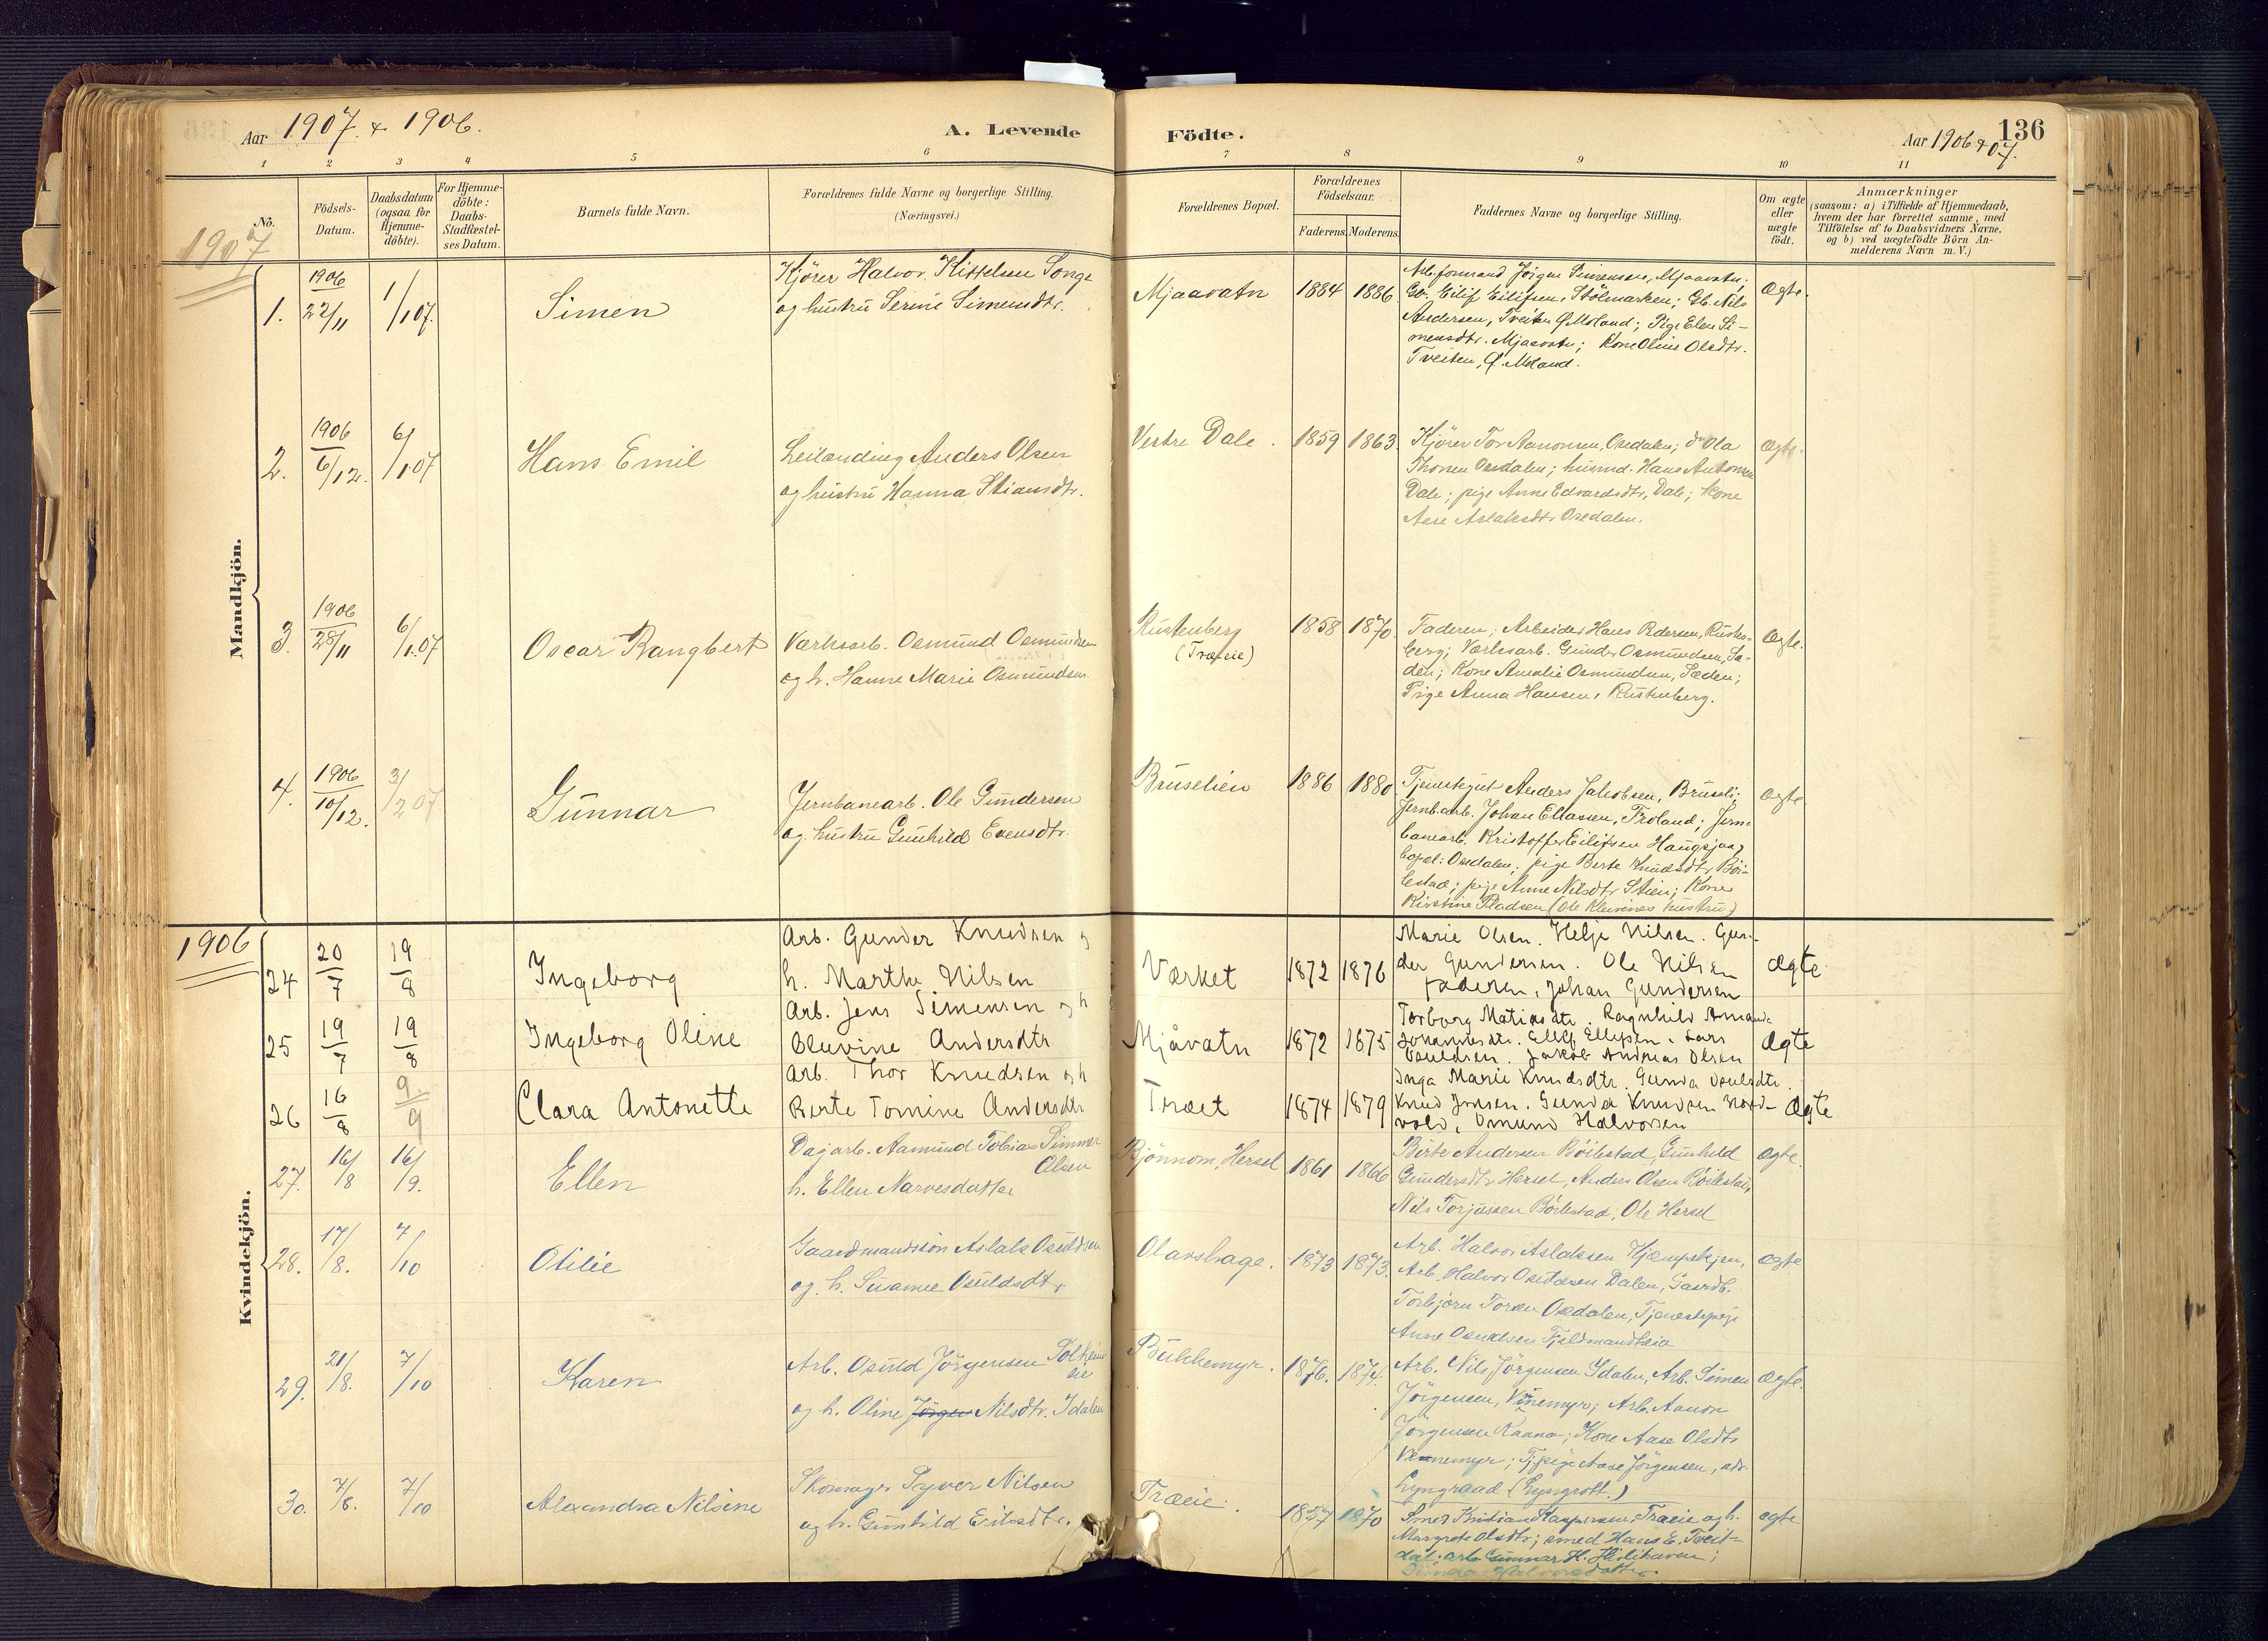 Aar 1907 & 1906.
A. Levende
Födte.
Aar 1906 & 07.
136
1 2 3 4 5 6 7 8 9 10 11
No.
Födsels-Datum.
Daabsdatum (ogsaa for Hjemme-döbte).
For Hjemme-döbte: Daabs-Stadfæstel-ses Datum.
Barnets fulde Navn.
Forældrenes fulde Navne og borgerlige Stilling.
(Næringsvei.)
Forældrenes Bopæl.
Forældrenes Födselsaar.
Faderens. Moderens.
Faddernes Navne og borgerlige Stilling.
Om ægte eller uægte födt.
Anmærkninger
(saasom: a) i Tilfælde af Hjemmedaab,
hvem der har forrettet samme, med
Tilföielse af to Daabsvidners Navne.
og b) ved uægtefödte Börn An-
melderens Navn m. V.)
1907
Mandkjön.
1. 1906 22/11 1/1 07. Simen
Kjörer Halvor Kittelsen Songe
og hustru Serine Simensdtr.
Mjaavatn 1884 1886
Arb.formand Jörgen Simensen, Mjaavatn;
Gb. Eilif Eilifsen, Stölmarken; Gb. Nils
Andersen, Tveiten Ø. Moland; Pige Elen Si-
mensdtr. Mjaavatn; Kone Oline Olsdtr.
Tveiten, Ø. Moland.
Ægte.
2. 1906 6/12. 6/1 07 Hans Emil
Leilænding Anders Olsen
og hustru Hanna Stiansdtr.
Vestre Dale. 1859 1863.
Kjörer Tor Aanonsen, Osedalen; do Ola
Thorsen Osedalen; husmd. Hans Antonsen
Dale; pige Anne Edvardsdtr, Dale; kone
Aase Aslaksdtr Osedalen.
Ægte.
3. 1906 28/11 6/1.07 Oscar Rangbert
Værksarb. Osmund Osmundsen
og h. Hanne Marie Osmundsen.
Rustenberg
(Træeie)
1858 1870.
Faderen; Arbeider Hans Pedersen, Rusten-
berg; Værksarb. Gunder Osmundsen, Sæ-
den; Kone Amalie Osmundsen, Sæden;
Pige Anna Hansen, Rustenberg.
Ægte.
4. 1906 10/12. 3/2 07 Gunnar
Jernbanearb. Ole Gundersen
og hustru Gunhild Evensdtr.
Bruselien 1886 1880
Tjenestegut Anders Jakobsen, Bruseli;
Jernb.arb. Johan Ellassen, Froland; Jern-
banearb. Kristoffer Eilifsen Haugsjaa,
bopæl: Osedalen; pige Berte Knudsdtr Böi-
lestad; pige Anne Nilsdtr Stien; Kone
Kirstine Pladsen (Ole Kleivenes hustru)
Ægte.
1906
Kvindekjön.
24 20/7 19/8 Ingeborg
Arb. Gunder Knudsen og
h. Marthe Nilsen
Værket 1872 1876
Marie Olsen. Helje Nilsen. Gun-
der Gundersen. Ole Nilsen
faderen, Johan Gundersen
Ægte
25 19/7 19/8 Ingeborg Oline
Arb. Jens Simensen og h
Oluvine Andersdtr
Mjåvatn 1872 1875
Torborg Matiasdtr. Ragnhild Amanda
Johannesdtr. Ellef Ellefsen. Lars
Osuldsen. Jakob Andreas Olsen
Ægte
26 16/8 9/9 Clara Antonette
Arb. Thor Knudsen og h
Berte Tomine Andersdtr
Træet 1874 1879
Inga Marie Knudsdtr. Gunda Osulsdtr.
Knud Jensen. Gunda Knudsen Nord-
vold, Omund Halvorsen
Ægte
27. 16/8 16/9. Ellen
Dagarb. Aamund Tobias Simmer
Olsen
h. Ellen Narvesdatter
Bjönnom, Hersel 1861 1866
Birte Andersen Böilestad, Gunhild
Gundersdtr Hersel, Anders Olsen Böilestad,
Nils Torjussen Böilestad, Ole Hersel
ægte.
28. 17/8. 7/10 Otilie
Gaardmandssön Aslak Osuldsen
og h. Susanne Osuldsdtr.
Olavshage. 1873 1873.
Arb. Halvor Aslaksen Kjæmpekjen,
Arb. Halvor Osuldsen Dalen, Gaardb.
Torbjörn Torsen Osedalen, Tjenestepige
Anne Osuldsen Fjeldmandheia
ægte
29. 21/8. 7/10 Karen
Arb. Osuld Jörgensen Solheim
eie
og h. Oline Jörgen Nilsdtr. Idalen
Bukkemyr. 1876. 1874.
Arb. Nils Jörgensen Idalen, Arb. Simen
Jörgensen, Vinemyr; Arb. Aanon
Jörgensen Kanna; Kone Aase Olsdtr
Vennemyr; Tj.pige Aase Jörgensen, adr.
Lyngraad (Lyngrott.)
ægte.
30. 7/8. 7/10 Alexandra Nilsine
Skomager Syver Nilsen
og h. Gunhild Eriksdtr.
Træeie. 1857 1870
Smed Kristian Kaspersen, Træeie og h.
Margrete Olsdtr; smed Hans E. Tveit-
dal; arb. Gunnar H. Hilihaven;
Gunda Halvorsdatter
ægte